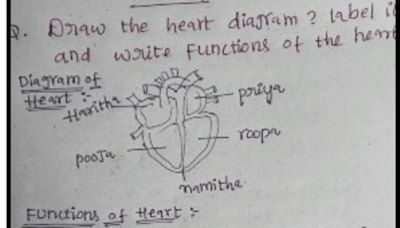 Q. Draw the heart diagram? label i
and write functions of the heart
Diagram of
Heart :-
Haritha
priya
pooja
roopa
namitha
Functions of Heart :-